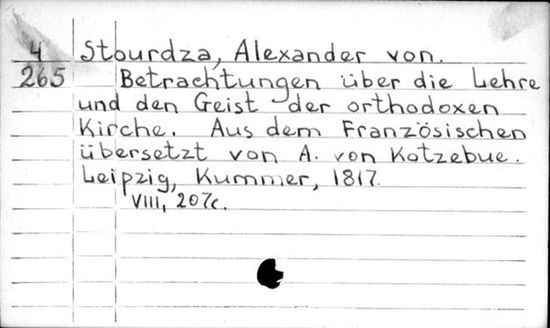 4
265
Stourdza, Alexander von.
Betrachtungen über die Lehre
und den Geist der orthodoxen
Kirche. Aus dem Französischen
übersetzt von A. von Kotzebue.
Leipzig, Kummer, 1817.
VIII, 207c.